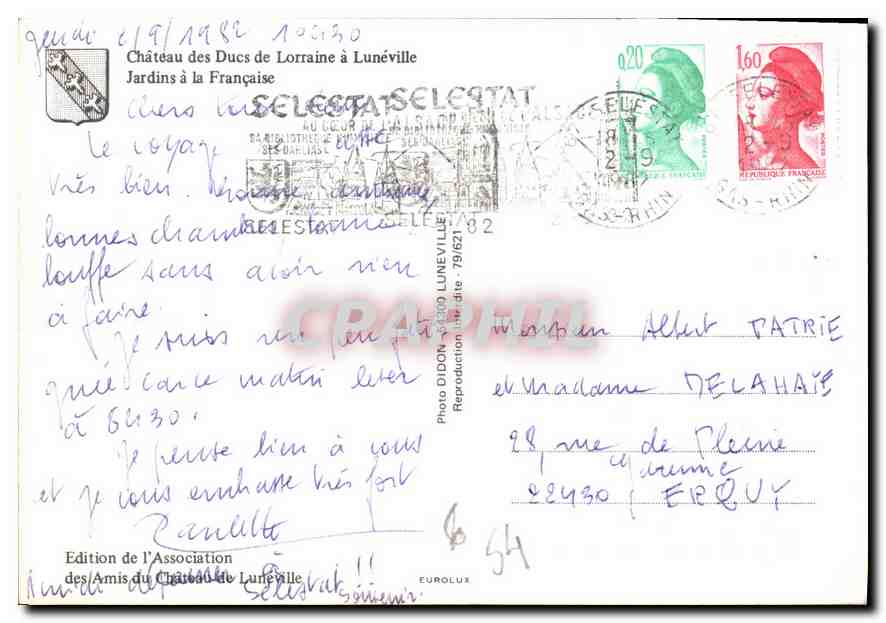 jeudi 2/9/1982 10h30
Château des Ducs de Lorraine à Lunéville
Jardins à la Française
Chers
SELESTAT SELESTAT
AU CŒUR DE L'ALSACE
SA BIBLIOTHEQUE HUMANISTE
Le voyage
très bien.
bonnes chambres bonne
bouffe sans avoir rien
à faire.
Je suis un peu fati-
guée car ce matin lever
à 6h30.
Je pense bien à vous
et je vous embrasse très fort
Paulette
Edition de l'Association
des Amis du Château de Lunéville
A midi déjeuner à
Sélestat !!
souvenir.
SELESTAT SELESTAT 82
Photo DIDON - 54300 LUNEVILLE
Reproduction Interdite - 79/621
EUROLUX
54
0,20
REPUBLIQUE FRANÇAISE
1,60
REPUBLIQUE FRANÇAISE
SELESTAT
18
2-9
BAS-RHIN
2-9
BAS-RHIN
CPAPHIL
Monsieur Albert PATRIE
et Madame DELAHAIE
28, rue de Pleine
Garenne
22430 ERQUY